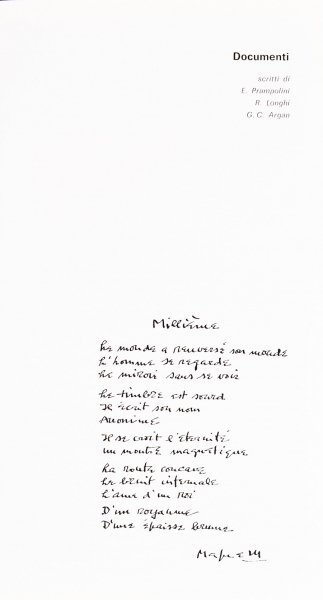 Documenti
scritti di
E. Prampolini
R. Longhi
G. C. Argan
Millième
Le monde a renversé son monde
L'homme se regarde
Le miroir sans se voir
Le timbre est sourd
Il écrit son nom
Anonyme
Il se croit l'éternité
un montré magnétique
La route concave
Le bruit infernale
L'ami d'un Roi
D'un Royaume
D'une épaisse brume